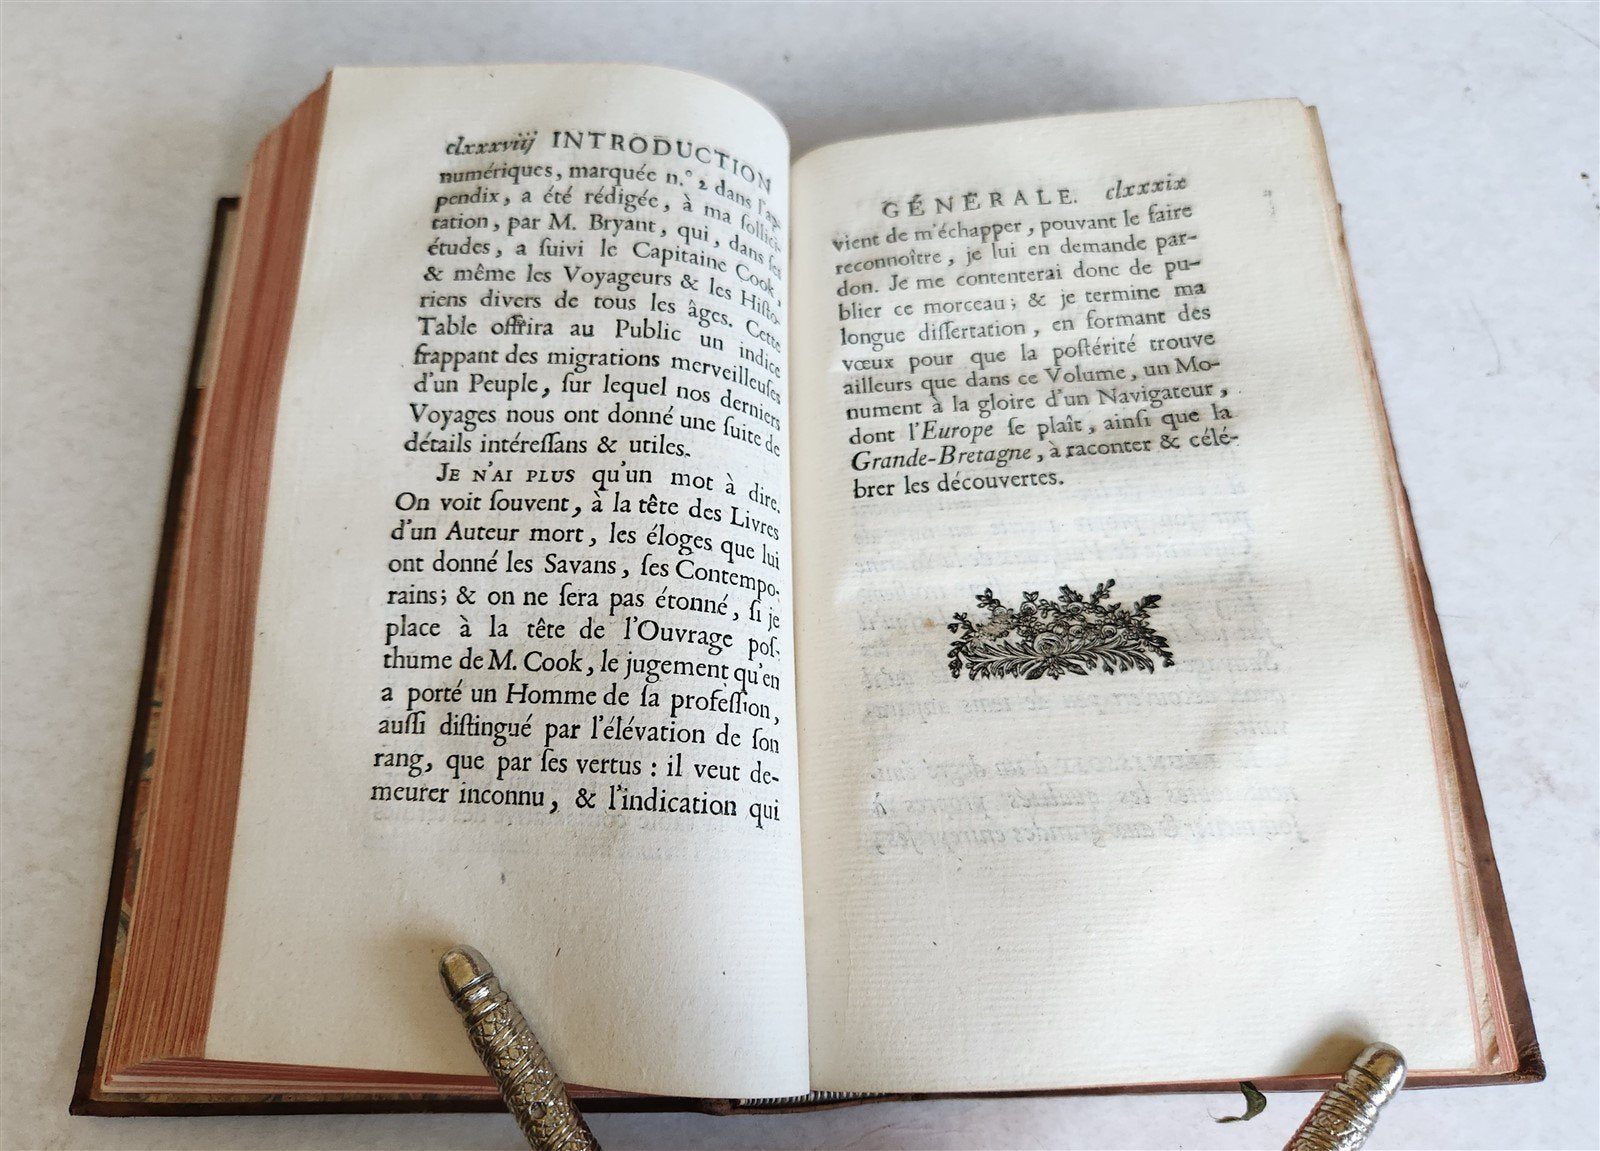 clxxxviij INTRODUCTION
numériques, marquée n.° 2 dans l'ap-
pendix, a été rédigée, à ma ſollici-
tation, par M. Bryant, qui, dans ſes
études, a ſuivi le Capitaine Cook,
& même les Voyageurs & les Hiſto-
riens divers de tous les âges. Cette
Table offrira au Public un indice
frappant des migrations merveilleuſes
d'un Peuple, ſur lequel nos derniers
Voyages nous ont donné une ſuite de
détails intéreſſans & utiles.
JE N'AI PLUS qu'un mot à dire.
On voit ſouvent, à la tête des Livres
d'un Auteur mort, les éloges que lui
ont donné les Savans, ſes Contempo-
rains; & on ne ſera pas étonné, ſi je
place à la tête de l'Ouvrage poſ-
thume de M. Cook, le jugement qu'en
a porté un Homme de ſa profeſſion,
auſſi diſtingué par l'élévation de ſon
rang, que par ſes vertus : il veut de-
meurer inconnu, & l'indication qui
GÉNÉRALE. clxxxix
vient de m'échapper, pouvant le faire
reconnoître, je lui en demande par-
don. Je me contenterai donc de pu-
blier ce morceau; & je termine ma
longue diſſertation, en formant des
vœux pour que la poſtérité trouve
ailleurs que dans ce Volume, un Mo-
nument à la gloire d'un Navigateur,
dont l'Europe ſe plaît, ainſi que la
Grande-Bretagne, à raconter & célé-
brer les découvertes.